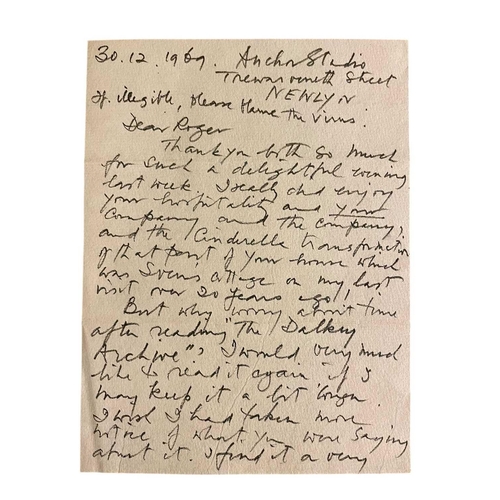 30.12.1969. Anchor Studio
Trewarveneth Street
NEWLYN
If illegible, please blame the virus.
Dear Roger
Thank you both so much
for such a delightful evening
last week. I really did enjoy
your hospitality and your
company and the company,
and the Cinderella transformation
of that part of your house which
was Svens cottage on my last
visit over 20 years ago!
But why worry about time
after reading "The Dalkey
Archive", I would very much
like to read it again if I
may keep it a bit longer.
I wish I had taken more
notice of what you were saying
about it. I find it a very